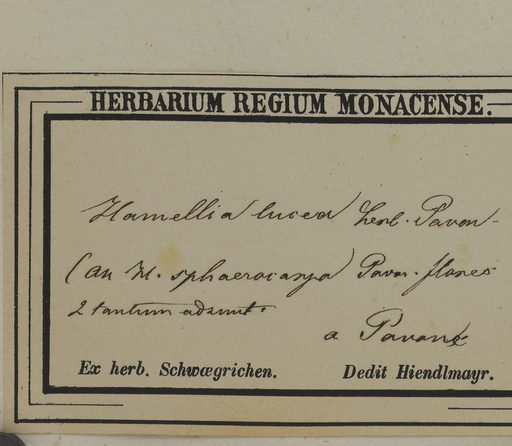 HERBARIUM REGIUM MONACENSE.
Hamellia lucea herb. Pavon-
(an H. sphaerocarpa) Pavon. flores
2 tantum adsunt.
a Pavone
Ex herb. Schwægrichen. Dedit Hiendlmayr.